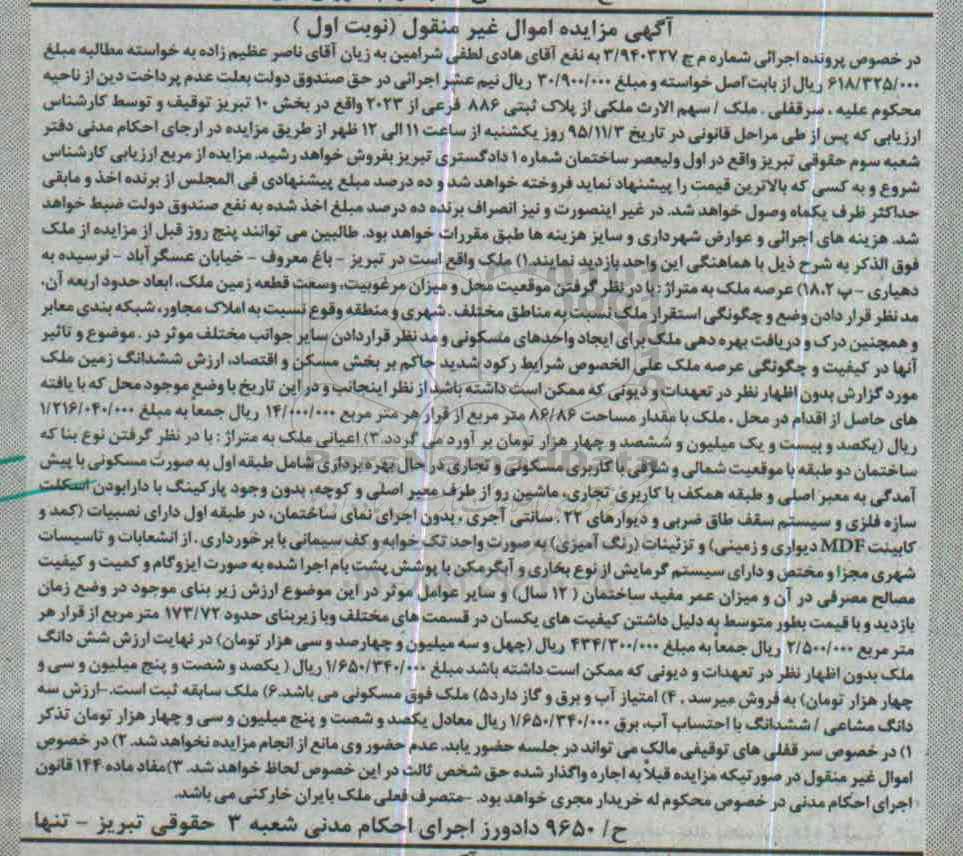 آگهی مزایده اموال غیر منقول (نوبت اول)
در خصوص پرونده اجرائی شماره م ج ۳/۹۴۰۳۲۷ به نفع آقای هادی لطفی شرامین به زیان آقای ناصر عظیم زاده به خواسته مطالبه مبلغ
۶۱۸/۳۲۵/۰۰۰ ریال از بابت اصل خواسته و مبلغ ۳۰/۹۰۰/۰۰۰ ریال نیم عشر اجرائی در حق صندوق دولت بعلت عدم پرداخت دین از ناحیه
محکوم علیه . سرقفلی . ملک / سهم الارث ملکی از پلاک ثبتی ۸۸۶ فرعی از ۲۰۲۳ واقع در بخش ۱۰ تبریز توقیف و توسط کارشناس
ارزیابی که پس از طی مراحل قانونی در تاریخ ۹۵/۱۱/۳ روز یکشنبه از ساعت ۱۱ الی ۱۲ ظهر از طریق مزایده در ارجای احکام مدنی دفتر
شعبه سوم حقوقی تبریز واقع در اول ولیعصر ساختمان شماره ۱ دادگستری تبریز بفروش خواهد رشید. مزایده از مربع ارزیابی کارشناس
شروع و به کسی که بالاترین قیمت را پیشنهاد نماید فروخته خواهد شد و ده درصد مبلغ پیشنهادی فی المجلس از برنده اخذ و مابقی
حداکثر ظرف یکماه وصول خواهد شد. در غیر اینصورت و نیز انصراف برنده ده درصد مبلغ اخذ شده به نفع صندوق دولت ضبط خواهد
شد. هزینه های اجرائی و عوارض شهرداری و سایز هزینه ها طبق مقررات خواهد بود. طالبین می توانند پنج روز قبل از مزایده از ملک
فوق الذکر به شرح ذیل با هماهنگی این واحد بازدید نمایند.۱) ملک واقع است در تبریز - باغ معروف - خیابان عسگرآباد - نرسیده به
دهیاری - پ ۱۸.۲) عرصه ملک به متراژ : با در نظر گرفتن موقعیت محل و میزان مرغوبیت، وسعت قطعه زمین ملک، ابعاد حدود اربعه آن،
مد نظر قرار دادن وضع و چگونگی استقرار ملک نسبت به مناطق مختلف . شهری و منطقه وقوع نسبت به املاک مجاور، شبکه بندی معابر
و همچنین درک و دریافت بهره دهی ملک برای ایجاد واحدهای مسکونی و مد نظر قراردادن سایر جوانب مختلف موثر در . موضوع و تاثیر
آنها در کیفیت و چگونگی عرصه ملک علی الخصوص شرایط رکود شدید حاکم بر بخش مسکن و اقتصاد، ارزش ششدانگ زمین ملک
مورد گزارش بدون اظهار نظر در تعهدات و دیونی که ممکن است داشته باشد از نظر اینجانب و در این تاریخ با وضع موجود محل که با یافته
های حاصل از اقدام در محل ، ملک با مقدار مساحت ۸۶/۸۶ متر مربع از قرار هر متر مربع ۱۴/۰۰۰/۰۰۰ ریال جمعاً به مبلغ ۱/۲۱۶/۰۴۰/۰۰۰
ریال (یکصد و بیست و یک میلیون و ششصد و چهار هزار تومان بر آورد می گردد.۳) اعیانی ملک به متراژ : با در نظر گرفتن نوع بنا که
ساختمان دو طبقه با موقعیت شمالی و شرقی با کاربری مسکونی و تجاری در حال بهره برداری شامل طبقه اول به صورت مسکونی با پیش
آمدگی به معبر اصلی و طبقه همکف با کاربری تجاری، ماشین رو از طرف معبر اصلی و کوچه، بدون وجود پارکینگ با دارابودن اسکلت
سازه فلزی و سیستم سقف طاق ضربی و دیوارهای ۲۲ . سانتی آجری ، بدون اجرای نمای ساختمان، در طبقه اول دارای نصبیات (کمد و
کابینت MDF دیواری و زمینی) و تزئینات (رنگ آمیزی) به صورت واحد تک خوابه و کف سیمانی با برخورداری . از انشعابات و تاسیسات
شهری مجزا و مختص و دارای سیستم گرمایش از نوع بخاری و آبگرمکن با پوشش پشت بام اجرا شده به صورت ایزوگام و کمیت و کیفیت
مصالح مصرفی در آن و میزان عمر مفید ساختمان (۱۲ سال) و سایر عوامل موثر در این موضوع ارزش زیر بنای موجود در وضع زمان
بازدید و با قیمت بطور متوسط به دلیل داشتن کیفیت های یکسان در قسمت های مختلف وبا زیربنای حدود ۱۷۳/۷۲ متر مربع از قرار هر
متر مربع ۲/۵۰۰/۰۰۰ ریال جمعاً به مبلغ ۴۳۴/۳۰۰/۰۰۰ ریال (چهل و سه میلیون و چهارصد و سی هزار تومان) در نهایت ارزش شش دانگ
ملک بدون اظهار نظر در تعهدات و دیونی که ممکن است داشته باشد مبلغ ۱/۶۵۰/۳۴۰/۰۰۰ ریال ( یکصد و شصت و پنج میلیون و سی و
چهار هزار تومان) به فروش میرسد . ۴) امتیاز آب و برق و گاز دارد۵) ملک فوق مسکونی می باشد.۶) ملک سابقه ثبت است.-ارزش سه
دانگ مشاعی / ششدانگ با احتساب آب، برق ۱/۶۵۰/۳۴۰/۰۰۰ ریال معادل یکصد و شصت و پنج میلیون و سی و چهار هزار تومان تذکر
۱) در خصوص سر قفلی های توقیفی مالک می تواند در جلسه حضور یابد. عدم حضور وی مانع از انجام مزایده نخواهد شد. ۲) در خصوص
اموال غیر منقول در صورتیکه مزایده قبلاً به اجاره واگذار شده حق شخص ثالث در این خصوص لحاظ خواهد شد. ۳)مفاد ماده ۱۴۴ قانون
اجرای احکام مدنی در خصوص محکوم له خریدار مجری خواهد بود. -متصرف فعلی ملک بایران خارکنی می باشد.
ح/ ۹۶۵۰ دادورز اجرای احکام مدنی شعبه ۳ حقوقی تبریز - تنها
ParsNamadData